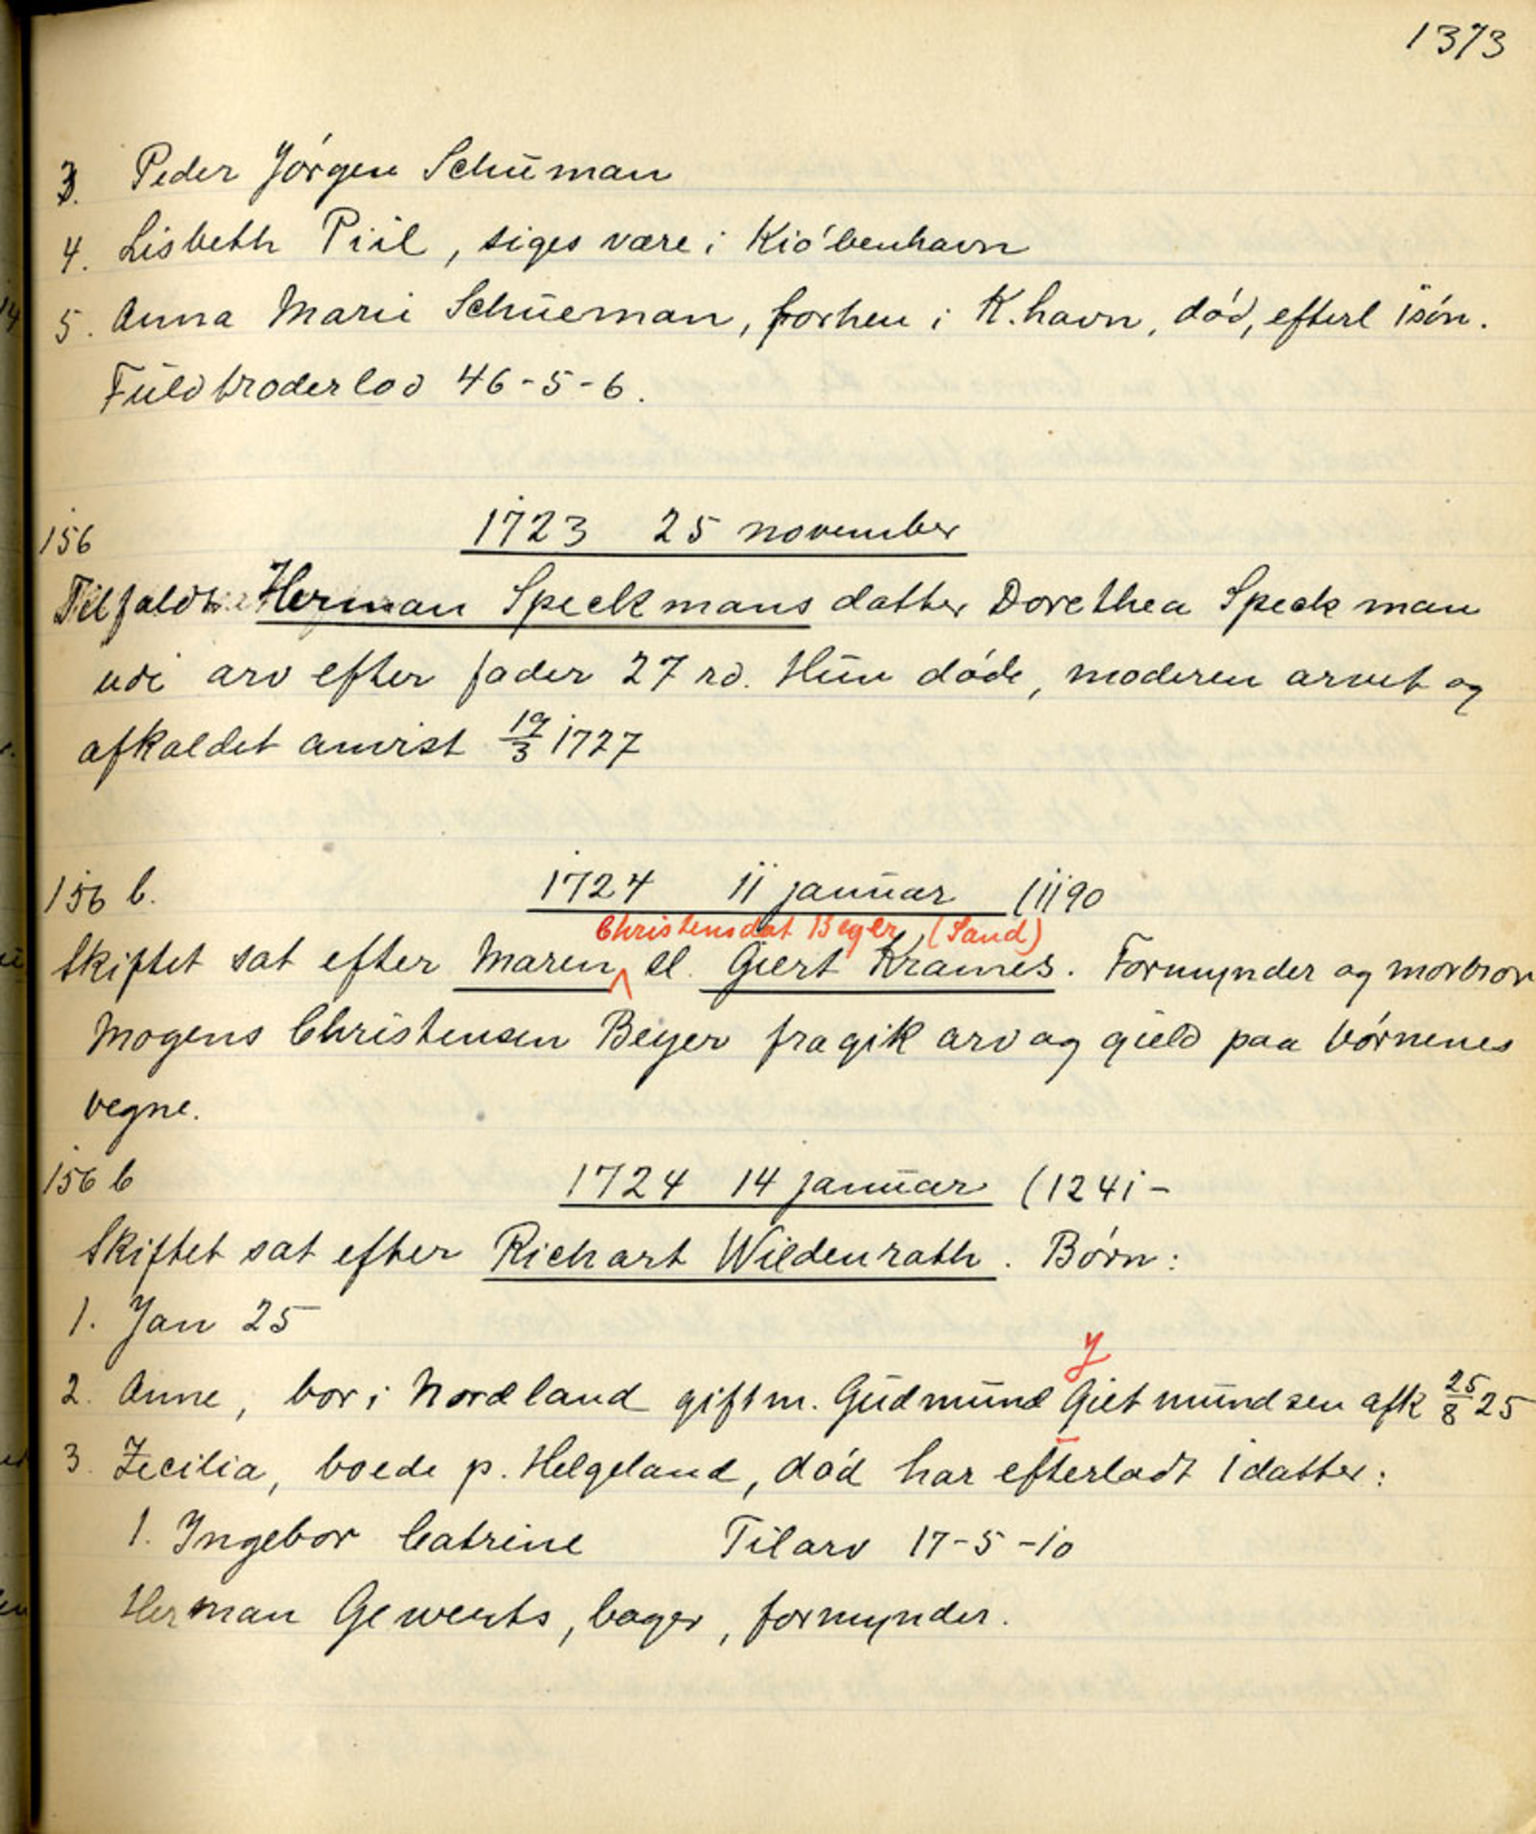 1373
3. Peder Jörgen Schūman
4. Lisbeth Piil, siges være i Kiöbenhavn
5. Anna Marie Schūeman, forhen i K.havn, död, efterl 1 sön.
Fūldbroderlod 46-5-6.
156 1723 25 november
Tilfaldt Herman Speckmans datter Dorethea Speckman
udi arv efter fader 27 rd. Hūn döde, moderen arvet og
afkaldet anvist 19/3 1727
156 b. 1724 11 janūar (1190
Christensdat Beyer (Sand)
Skiftet sat efter Maren el. Giert Krames. Formynder og morbror
Mogens Christensen Beyer fragik arv og gield paa börnenes
vegne.
156 b 1724 14 janūar (1241-
Skiftet sat efter Richart Wildenrath. Börn:
1. Jan 25
y
2. Anne, bor i Nordland gift m. Gūdmūnd Gietmūndsen afk 25/8 25
3. Zecilia, boede p. Helgeland, död har efterladt 1 datter:
1. Ingebor Catrine Til arv 17-5-10
Herman Gewerts, bager, formynder.